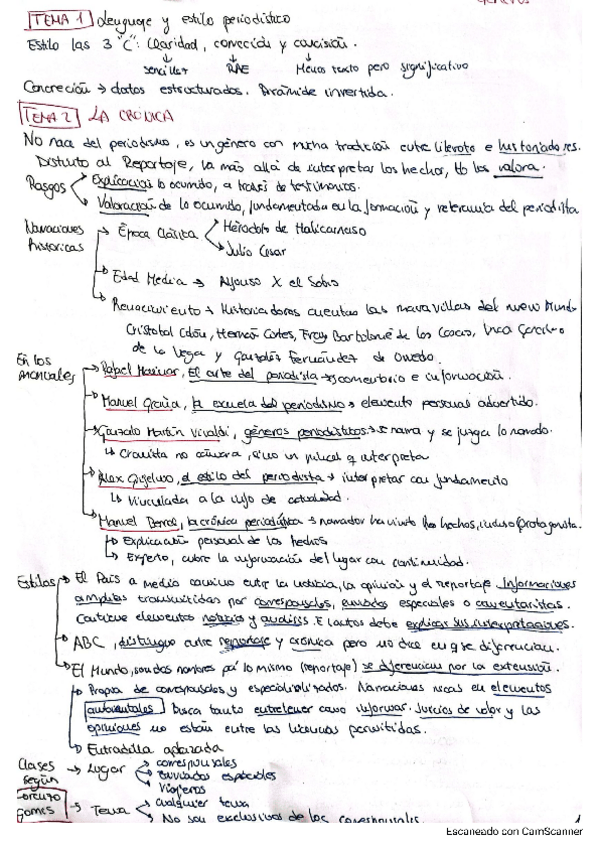 géneros
TEMA 1 Lenguaje y estilo periodístico
Estilo las 3 "C": Claridad, corrección y concisión.
sencillez RAE Menos texto pero significativo
Concreción → datos estructurados. Pirámide invertida.
TEMA 2 LA CRÓNICA
No nace del periodismo, es un género con mucha tradición entre literato e historiadores.
Distinto al Reportaje, va más allá de interpretar los hechos, tb los valora.
Rasgos
Explicación lo ocurrido, a través de testimonios.
Valoración de lo ocurrido, fundamentada en la formación y referencia del periodista
Narraciones históricas
→ Época Clásica
Heródoto de Halicarnaso
Julio Cesar
→ Edad Media → Alfonso X el Sabio
→ Renacimiento → Historiadores cuentan las maravillas del nuevo Mundo
Cristobal Colón, Hernán Cortes, Fray Bartolomé de las Casas, Inca Garcilaso
de la Vega y Gonzalo Fernández de Oviedo.
En los manuales
→ Rafael Mainar, El arte del periodista → comentario e información.
→ Manuel Graña, la escuela del periodismo → elemento personal advertido.
→ Gonzalo Martín Vivaldi, géneros periodísticos → se narra y se juzga lo narado.
↳ Cronista no cámara, sino un pincel q interpreta
→ Alex Grijelmo, el estilo del periodista → interpretar con fundamento
↳ Vinculada a la actualidad.
→ Manuel Bernal, la crónica periodística → narrador ha visto los hechos, incluso protagonista.
↳ Explicación personal de los hechos
↳ Experto, cubre la información del lugar con continuidad.
Estilos → El País a medio camino entre la noticia, la opinión y el reportaje. Informaciones
amplias transmitidas por corresponsales, enviados especiales o comentaristas.
Contiene elementos noticia y análisis. El autos debe explicar sus interpretaciones.
→ ABC, distingue entre reportaje y crónica pero no dice en q se diferencian.
→ El Mundo, son dos nombres pa' lo mismo (reportaje) se diferencian por la extensión.
→ Propia de corresponsales y especializados. Narraciones ricas en elementos
ambientales Busca tanto entretener como informar. Juicios de valor y las
opiniones no están entre las licencias permitidas.
↳ Entradilla aplazada
Clases según Gomis
→ Lugar
→ corresponsales
→ enviados especiales
→ Viajeros
→ Tema
→ Cualquier tema
→ No son exclusivos de los corresponsales
1
Escaneado con CamScanner